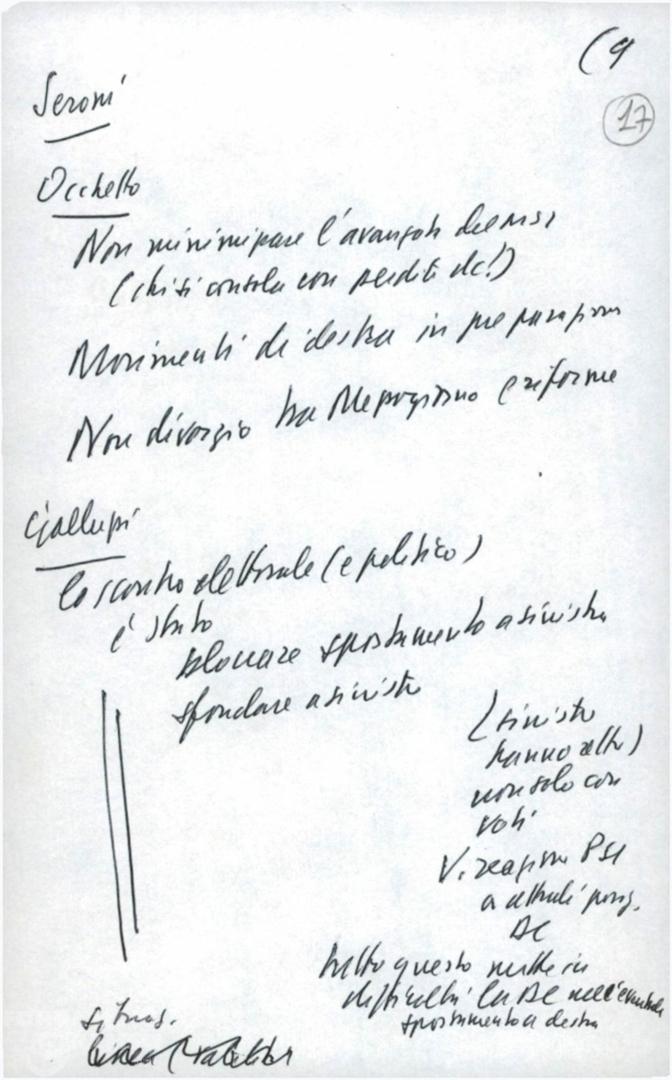 (9
17
Seroni
Occhetto
Non minimizzare l'avanzata del MSI
(chi si consola con perdite dc!)
Movimenti di destra in preparazione
Non divorzio tra Mezzogiorno e riforme
Galluzzi
lo scontro elettorale (e politico)
è stato
bloccare spostamento a sinistra
sfondare a sinistra
(sinistre
hanno
non solo con
voti
V. reazione PSI
a attuali
DC
tutto questo mette in
difficoltà la DC nell'eventuale
spostamento a destra